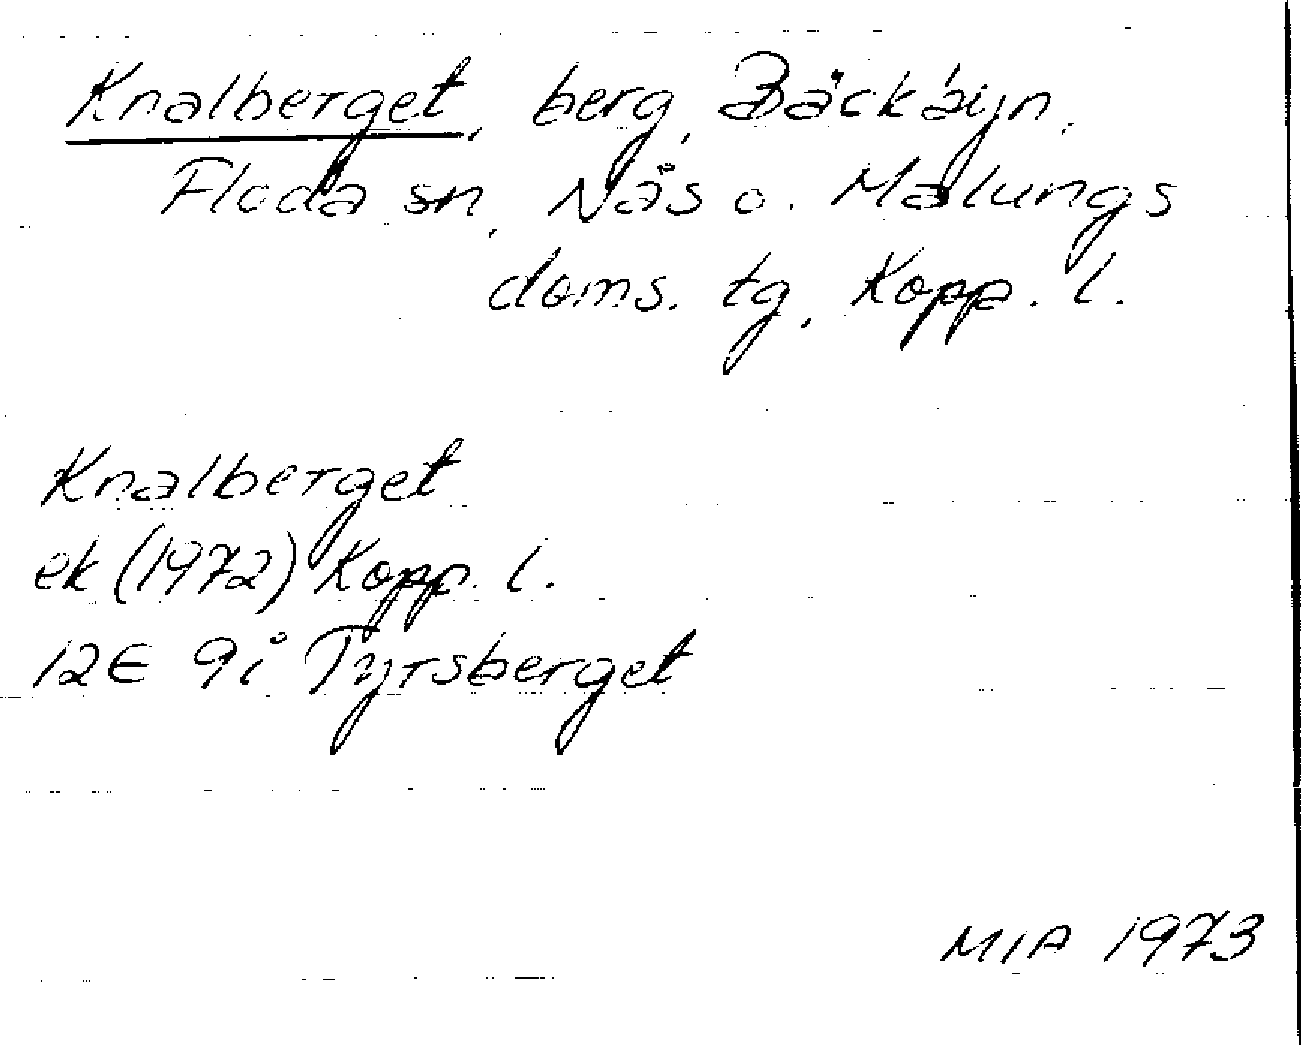 Knalberget, berg, Bäckbyn,
Floda sn, Nås o. Malungs
doms. tg, Kopp. l.
Knalberget
ek (1972) Kopp. l.
12E 9i Tyrsberget
MIA 1973